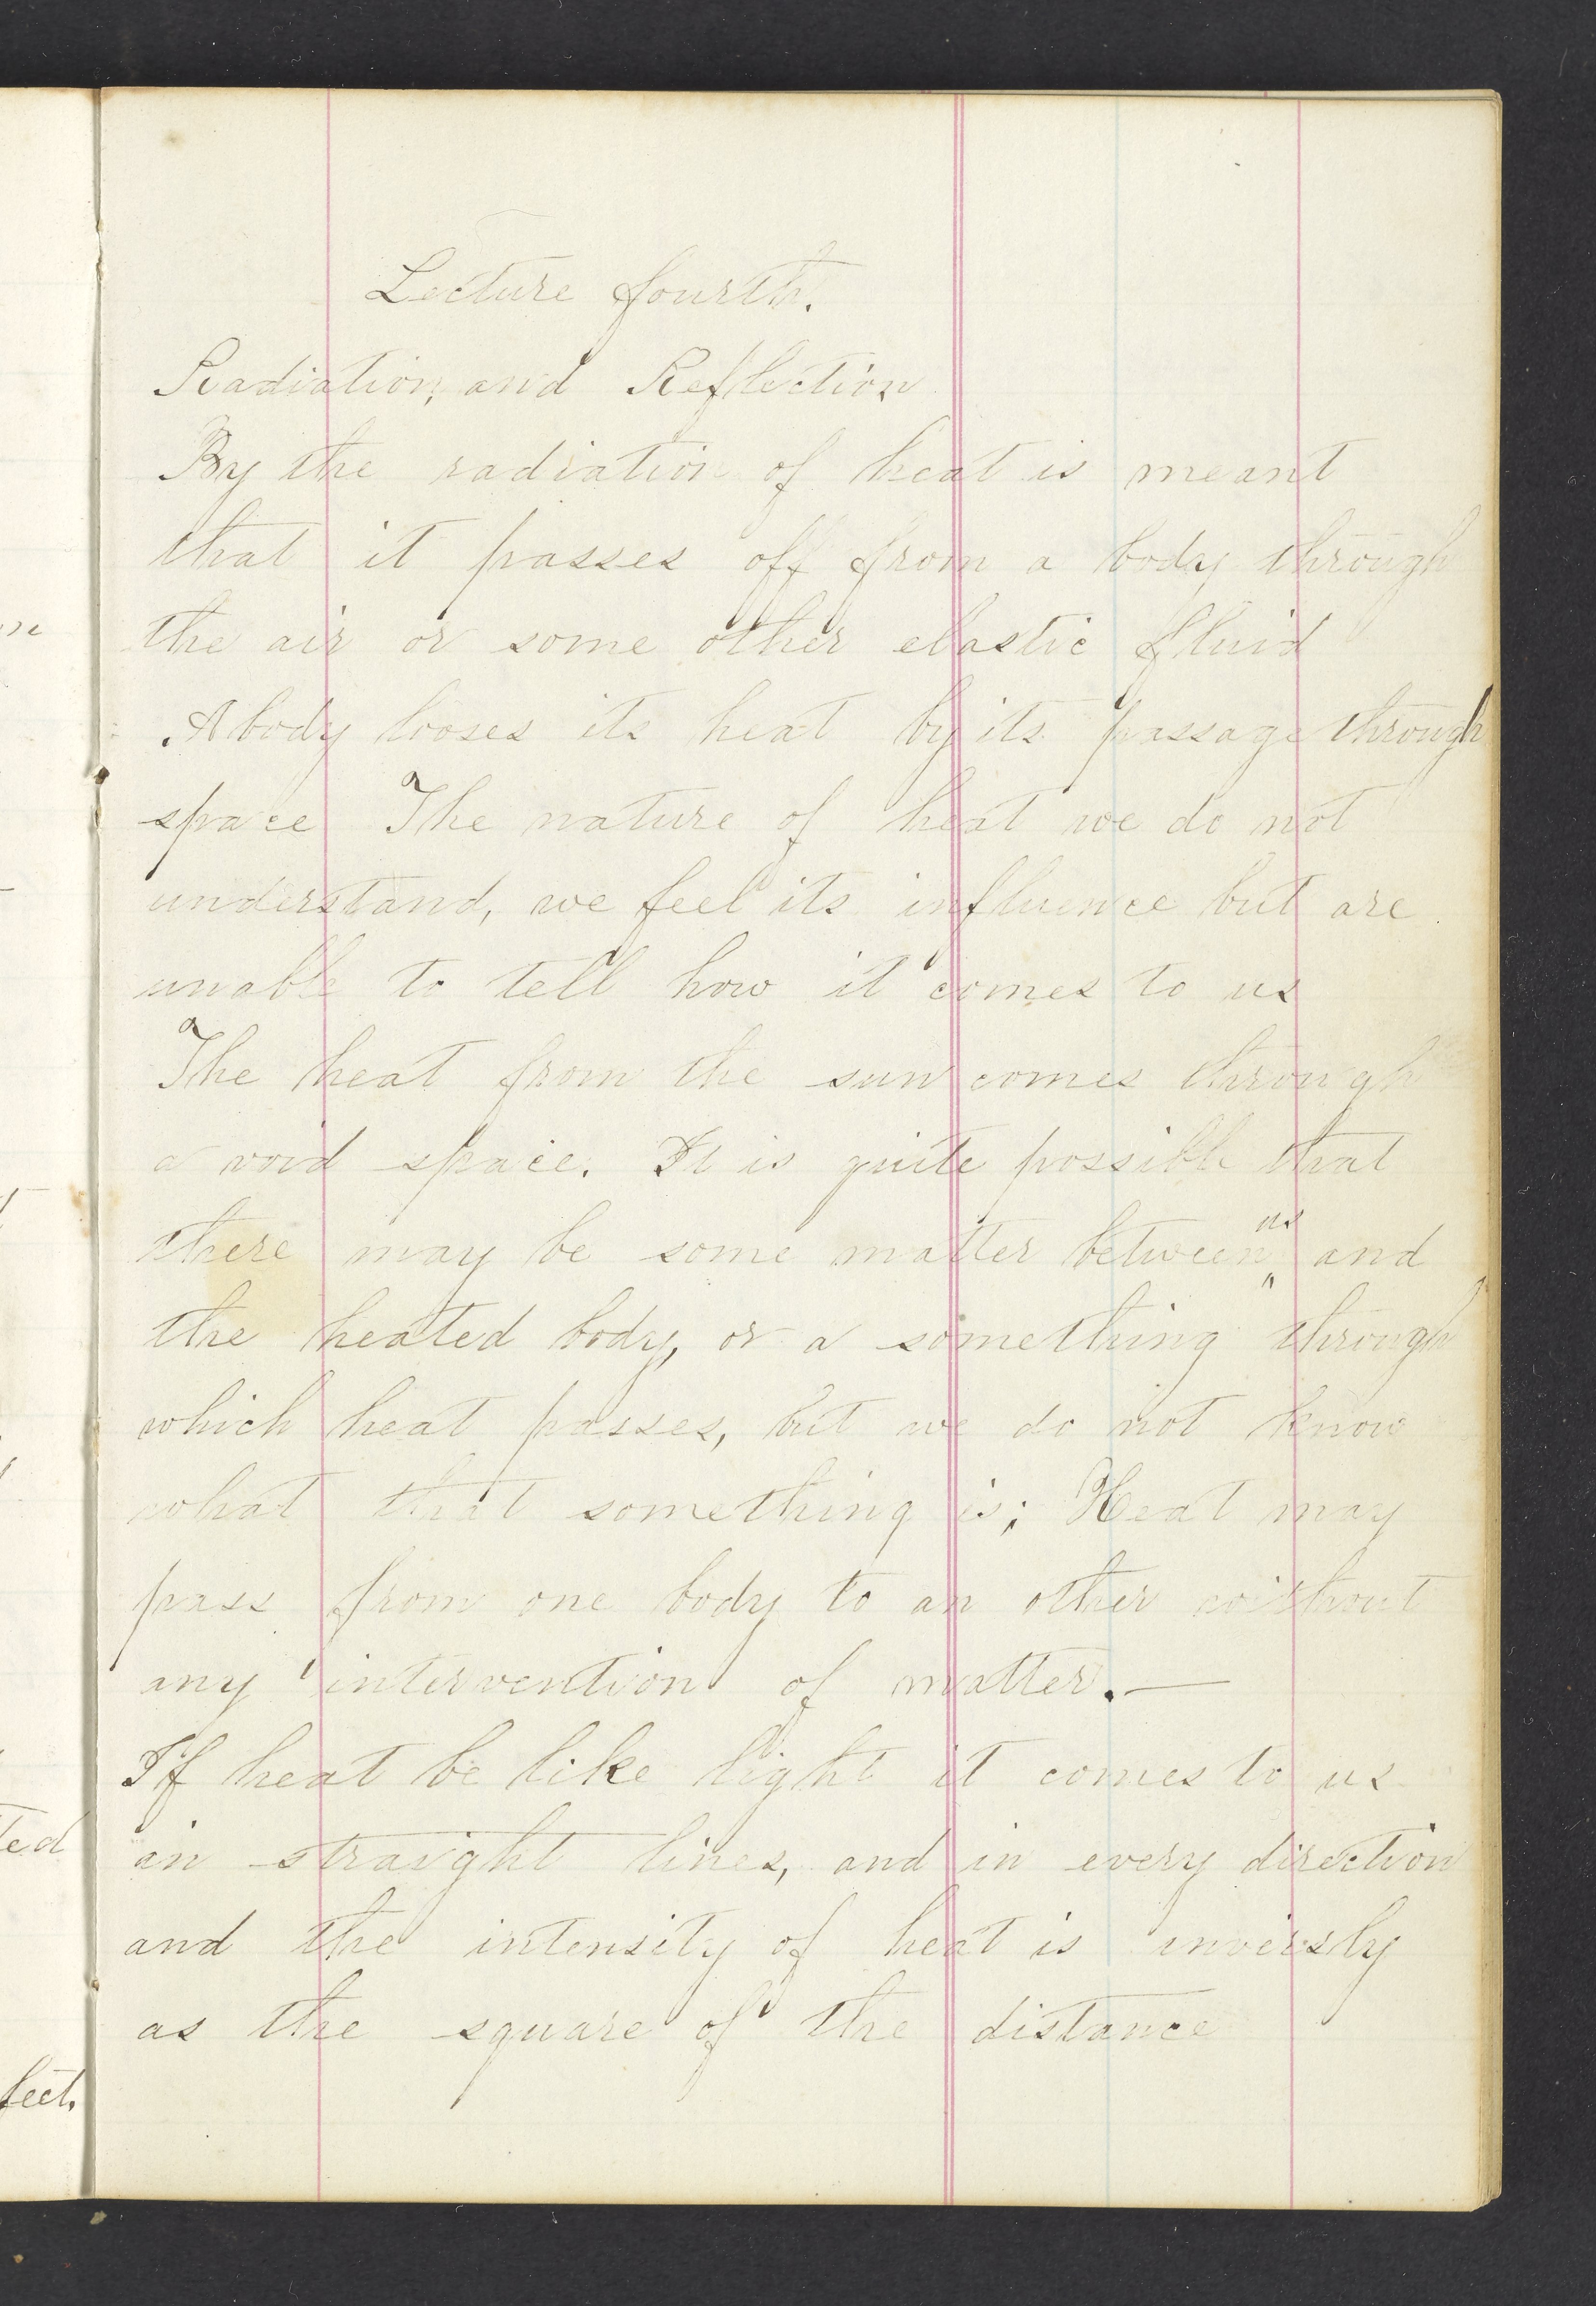 Lecture fourth.
Radiation, and Reflection
By the radiation of heat is meant
that it passes off from a body through
the air or some other elastic fluid
A body looses its heat by its passage through
space The nature of heat we do not
understand, we feel its influence but are
unable to tell how it comes to us
The heat from the sun comes through
a void space. It is quite possible that
there may be some matter between us and
the heated body, or a something through
which heat passes, but we do not know
what that something is; Heat may
pass from one body to an other without
any intervention of matter.—
If heat be like light it comes to us
in straight lines, and in every direction
and the intensity of heat is inversly
as the square of the distance
ted
feet.